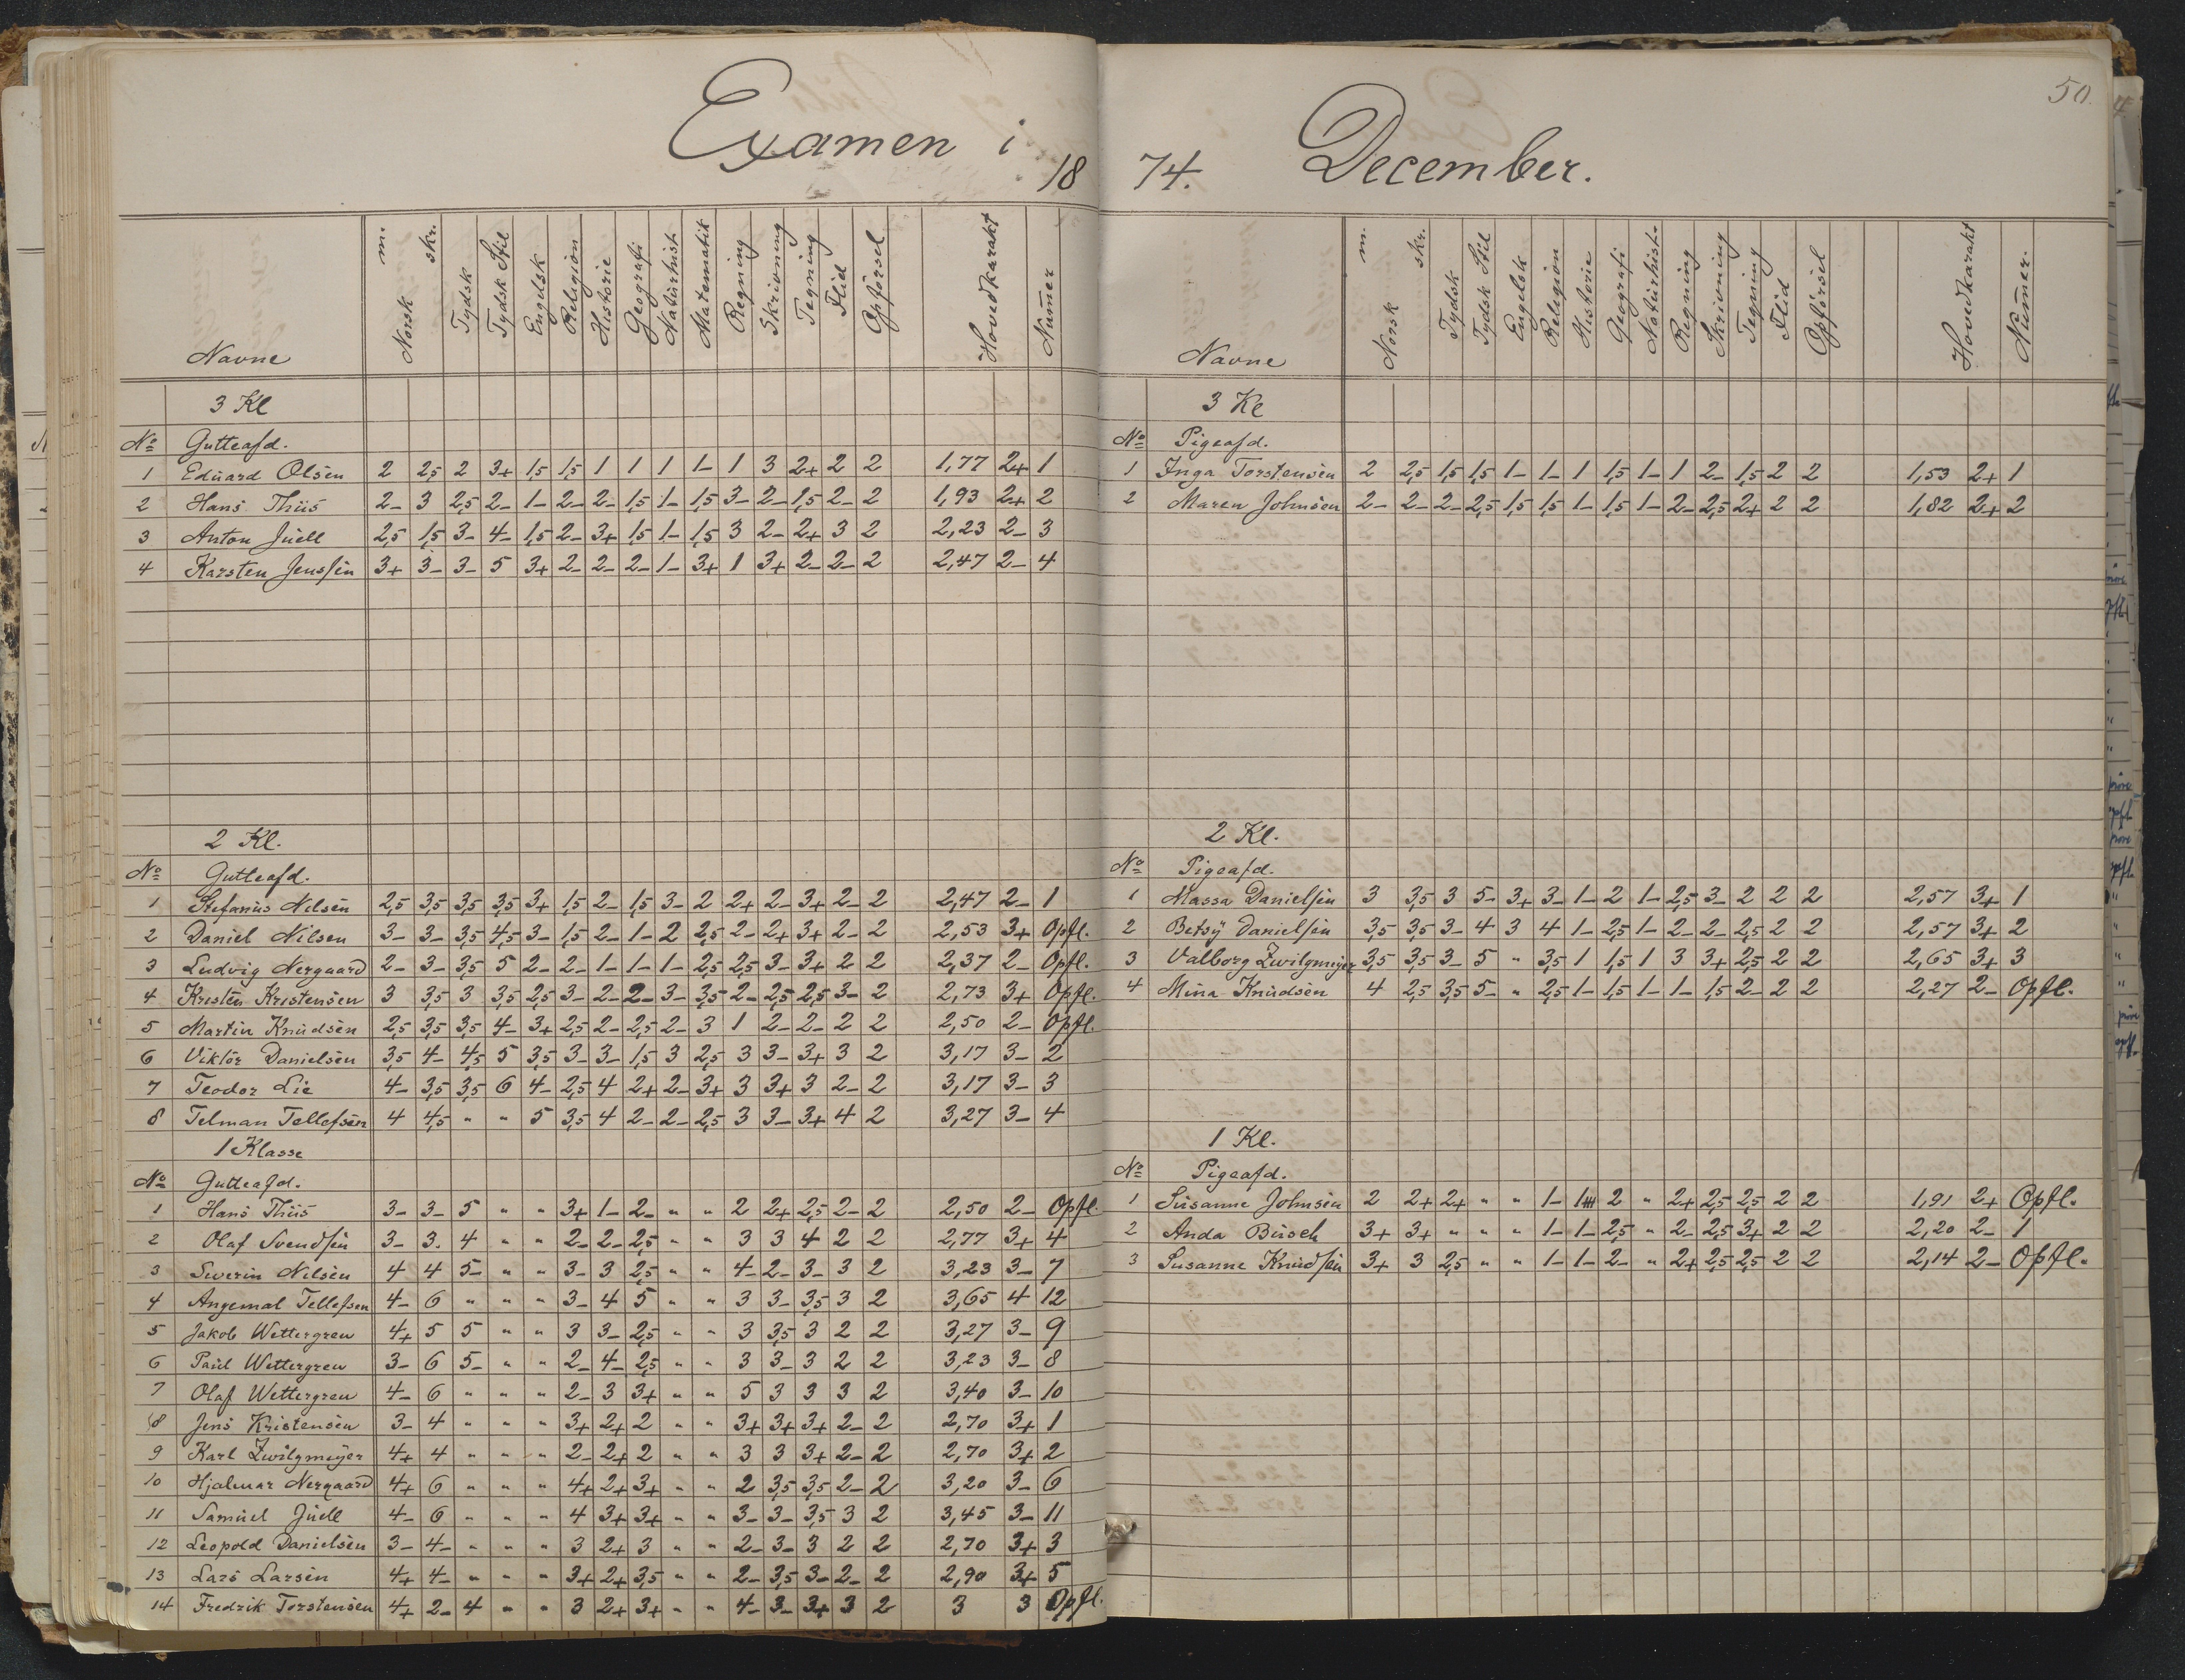 Examen i
18
Navne Norsk m. skr. Tydsk Tydsk Stil Engelsk Religion Historie Geografi Naturhist. Matematik Regning Skrivning Tegning Flid Opförsel Hovedkarakt Nummer
3 Kl
No Gutteafd.
1 Eduard Olsen 2 2,5 2 3+ 1,5 1,5 1 1 1 1- 1 3 2+ 2 2 1,77 2+ 1
2 Hans Thiis 2- 3 2,5 2- 1- 2- 2- 1,5 1- 1,5 3- 2- 1,5 2- 2 1,93 2+ 2
3 Anton Juell 2,5 1,5 3- 4- 1,5 2- 3+ 1,5 1- 1,5 3 2- 2+ 3 2 2,23 2- 3
4 Karsten Jenssen 3+ 3- 3- 5 3+ 2- 2- 2- 1- 3+ 1 3+ 2- 2- 2 2,47 2- 4
2 Kl.
No Gutteafd.
1 Stefanus Nilsen 2,5 3,5 3,5 3,5 3+ 1,5 2- 1,5 3- 2 2+ 2- 3+ 2- 2 2,47 2- 1
2 Daniel Nilsen 3- 3- 3,5 4,5 3- 1,5 2- 1- 2 2,5 2- 2+ 3+ 2- 2 2,53 3+ Opfl.
3 Ludvig Nergaard 2- 3- 3,5 5 2- 2- 1- 1- 1- 2,5 2,5 3- 3+ 2 2 2,37 2- Opfl.
4 Kristen Kristensen 3 3,5 3 3,5 2,5 3- 2- 2- 3- 3,5 2- 2,5 2,5 3- 2 2,73 3+ Opfl.
5 Martin Knudsen 2,5 3,5 3,5 4- 3+ 2,5 2- 2,5 2- 3 1 2- 2- 2 2 2,50 2- Opfl.
6 Viktor Danielsen 3,5 4- 4,5 5 3,5 3- 3- 1,5 3 2,5 3 3- 3+ 3 2 3,17 3- 2
7 Teodor Lie 4- 3,5 3,5 6 4- 2,5 4 2+ 2- 3+ 3 3+ 3 2- 2 3,17 3- 3
8 Telman Tellefsen 4 4,5 " " 5 3,5 4 2- 2- 2,5 3 3- 3+ 4 2 3,27 3- 4
1 Klasse
No Gutteafd.
1 Hans Thiis 3- 3- 5 " " 3+ 1- 2- " " 2 2+ 2,5 2- 2 2,50 2- Opfl.
2 Olaf Svendsen 3- 3. 4 " " 2- 2- 2,5 " " 3 3 4 2 2 2,77 3+ 4
3 Severin Nilsen 4 4 5- " " 3- 3 2,5 " " 4- 2- 3- 3 2 3,23 3- 7
4 Angemal Tellefsen 4- 6 " " " 3- 4 5 " " 3 3- 3,5 3 2 3,65 4 12
5 Jakob Wettergren 4+ 5 5 " " 3 3- 2,5 " " 3 3,5 3 2 2 3,27 3- 9
6 Paul Wettergren 3- 6 5- " " 2- 4- 2,5 " " 3 3- 3 2 2 3,23 3- 8
7 Olaf Wettergren 4- 6 " " " 2- 3 3+ " " 5 3 3 3 2 3,40 3- 10
8 Jens Kristensen 3- 4 " " " 3+ 2+ 2 " " 3+ 3+ 3+ 2- 2 2,70 3+ 1
9 Karl Zwilgmeyer 4+ 4 " " " 2- 2+ 2 " " 3 3 3+ 2- 2 2,70 3+ 2
10 Hjalmar Nergaard 4+ 6 " " " 4+ 2+ 3+ " " 2 3,5 3,5 2- 2 3,20 3- 6
11 Samuel Juell 4- 6 " " " 4 3+ 3+ " " 3- 3- 3,5 3 2 3,45 3- 11
12 Leopold Danielsen 3- 4- " " " 3 2+ 3 " " 2- 3- 3 2 2 2,70 3+ 3
13 Lars Larsen 4+ 4- " " " 3+ 2+ 3,5 " " 2- 3,5 3- 2- 2 2,90 3+ 5
14 Fredrik Torstensen 4+ 2- 4 " " 3 2+ 3+ " " 4- 3- 3+ 3 2 3 3 Opfl.
50.
74. December.
Navne Norsk m. skr. Tydsk Tydsk Stil Engelsk Religion Historie Geografi Naturhist. Regning Skrivning Tegning Flid Opförsel Hovedkarakt Nummer.
3 Kl
No Pigeafd.
1 Inga Torstensen 2 2,5 1,5 1,5 1- 1- 1 1,5 1- 1 2- 1,5 2 2 1,53 2+ 1
2 Maren Johnsen 2- 2- 2- 2,5 1,5 1,5 1- 1,5 1- 2- 2,5 2+ 2 2 1,82 2+ 2
2 Kl.
No Pigeafd.
1 Massa Danielsen 3 3,5 3 5- 3+ 3- 1- 2 1- 2,5 3- 2 2 2 2,57 3+ 1
2 Betsy Danielsen 3,5 3,5 3- 4 3 4 1- 2,5 1- 2- 2- 2,5 2 2 2,57 3+ 2
3 Valborg Zwilgmeyer 3,5 3,5 3- 5 " 3,5 1 1,5 1 3 3+ 2,5 2 2 2,65 3+ 3
4 Mina Knudsen 4 2,5 3,5 5- " 2,5 1- 1,5 1- 1- 1,5 2- 2 2 2,27 2- Opfl.
1 Kl.
No Pigeafd.
1 Susanne Johnsen 2 2+ 2+ " " 1- 2 " 2+ 2,5 2,5 2 2 1,91 2+ Opfl.
2 Anda Busch 3+ 3+ " " " 1- 1- 2,5 " 2- 2,5 3+ 2 2 2,20 2- 1
3 Susanne Knudsen 3+ 3 2,5 " " 1- 1- 2- " 2+ 2,5 2,5 2 2 2,14 2- Opfl.